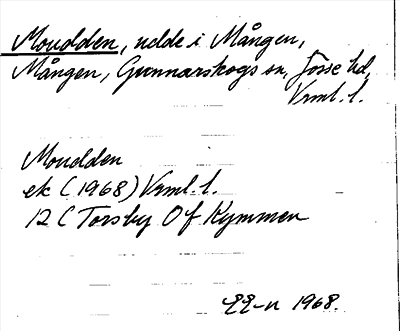 Moudden, udde i Mången,
Mången, Gunnarskogs sn, Jösse hd,
Vrml. l.
Moudden
ek (1968) Vrml. l.
12 C Torsby Of Kymmen
1968.